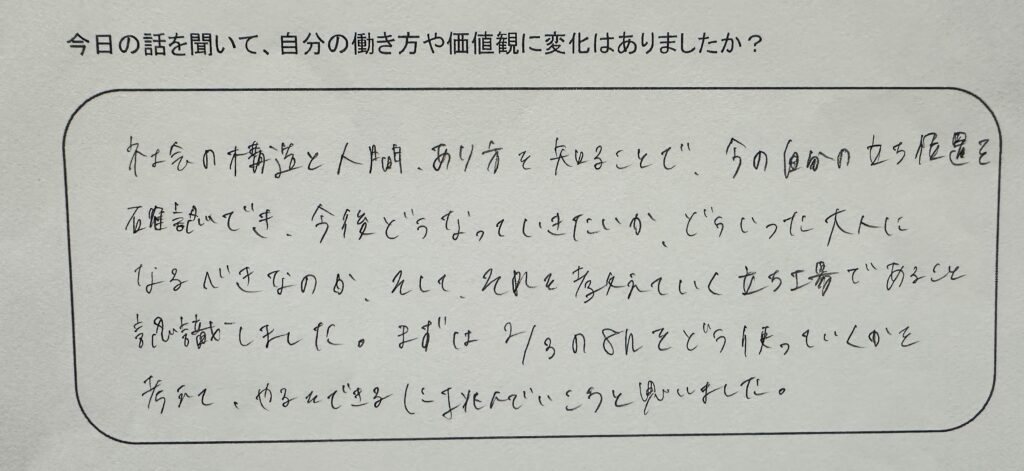 今日の話を聞いて、自分の働き方や価値観に変化はありましたか？
社会の構造と人間、あり方を知ることで、今の自分の立ち位置を
確認でき、今後どうなっていきたいか、どういった大人に
なるべきなのか、そして、それを考えていく立ち場であること
認識しました。まずは2/3の8hをどう使っていくかを
考えて、やるできるに挑んでいこうと思いました。